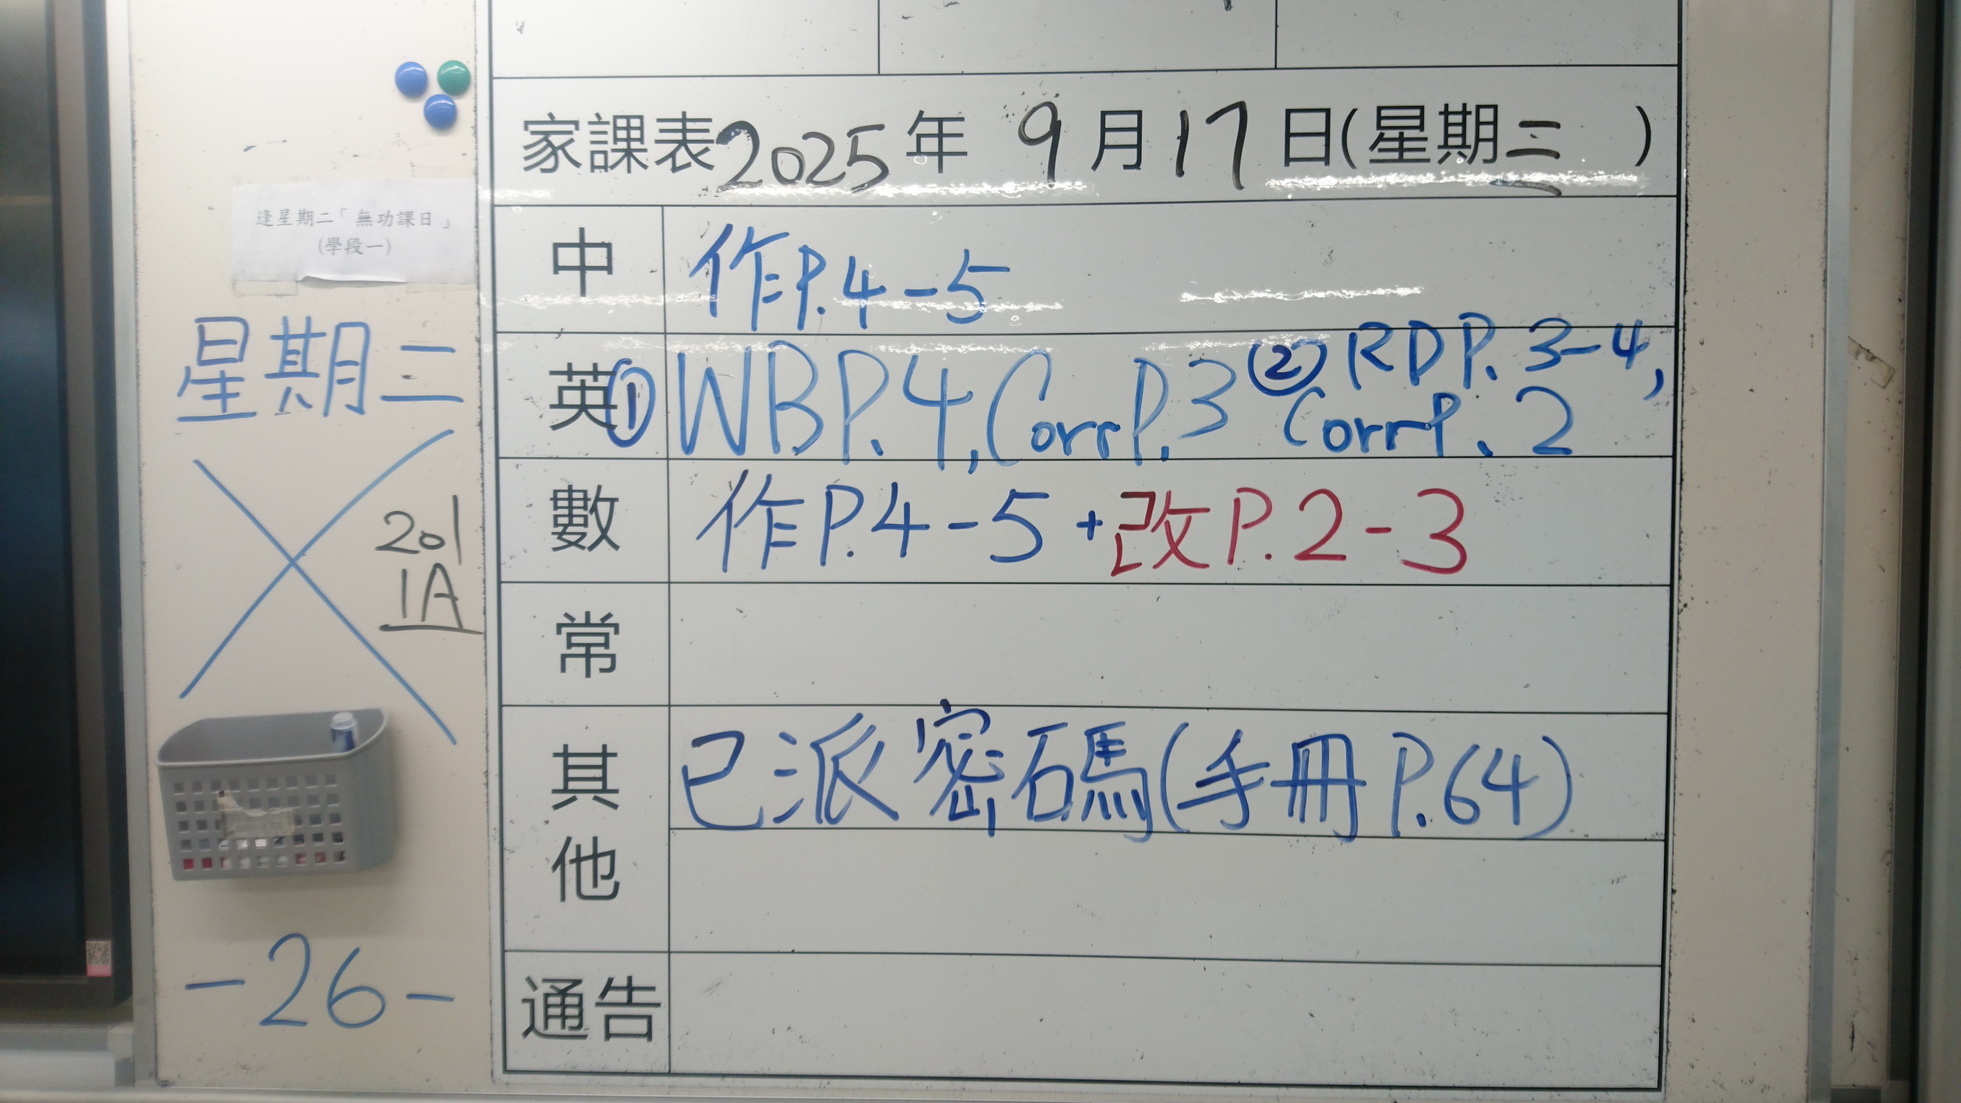 家課表2025年 9月17日(星期三 )
逢星期二「無功課日」
(學段一)
中 作P.4-5
星期三
英 ①WBP.4,CorrP.3 ②RDP.3-4,
CorrP.2
數 作P.4-5+改P.2-3
201
1A
常
其他 已派密碼(手冊P.64)
-26-
通告